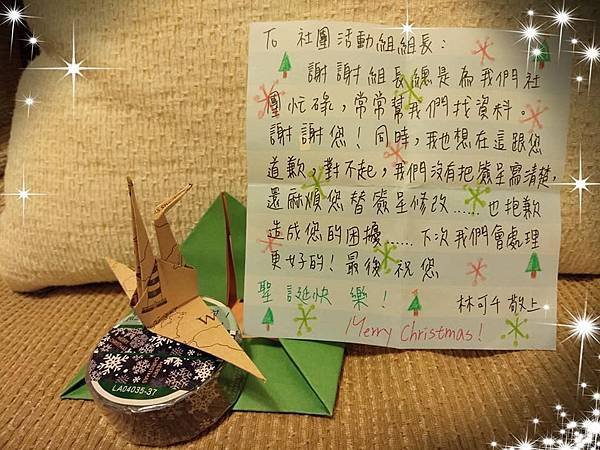 To 社團活動組組長:
謝謝組長總是為我們社
團忙碌，常常幫我們找資料。
謝謝您！同時，我也想在這跟您
道歉，對不起，我們沒有把簽呈寫清楚，
還麻煩您替簽呈修改......也抱歉
造成您的困擾......下次我們會處理
更好的！最後祝您
聖誕快樂！
林可千 敬上
Merry Christmas!
LA04035-37